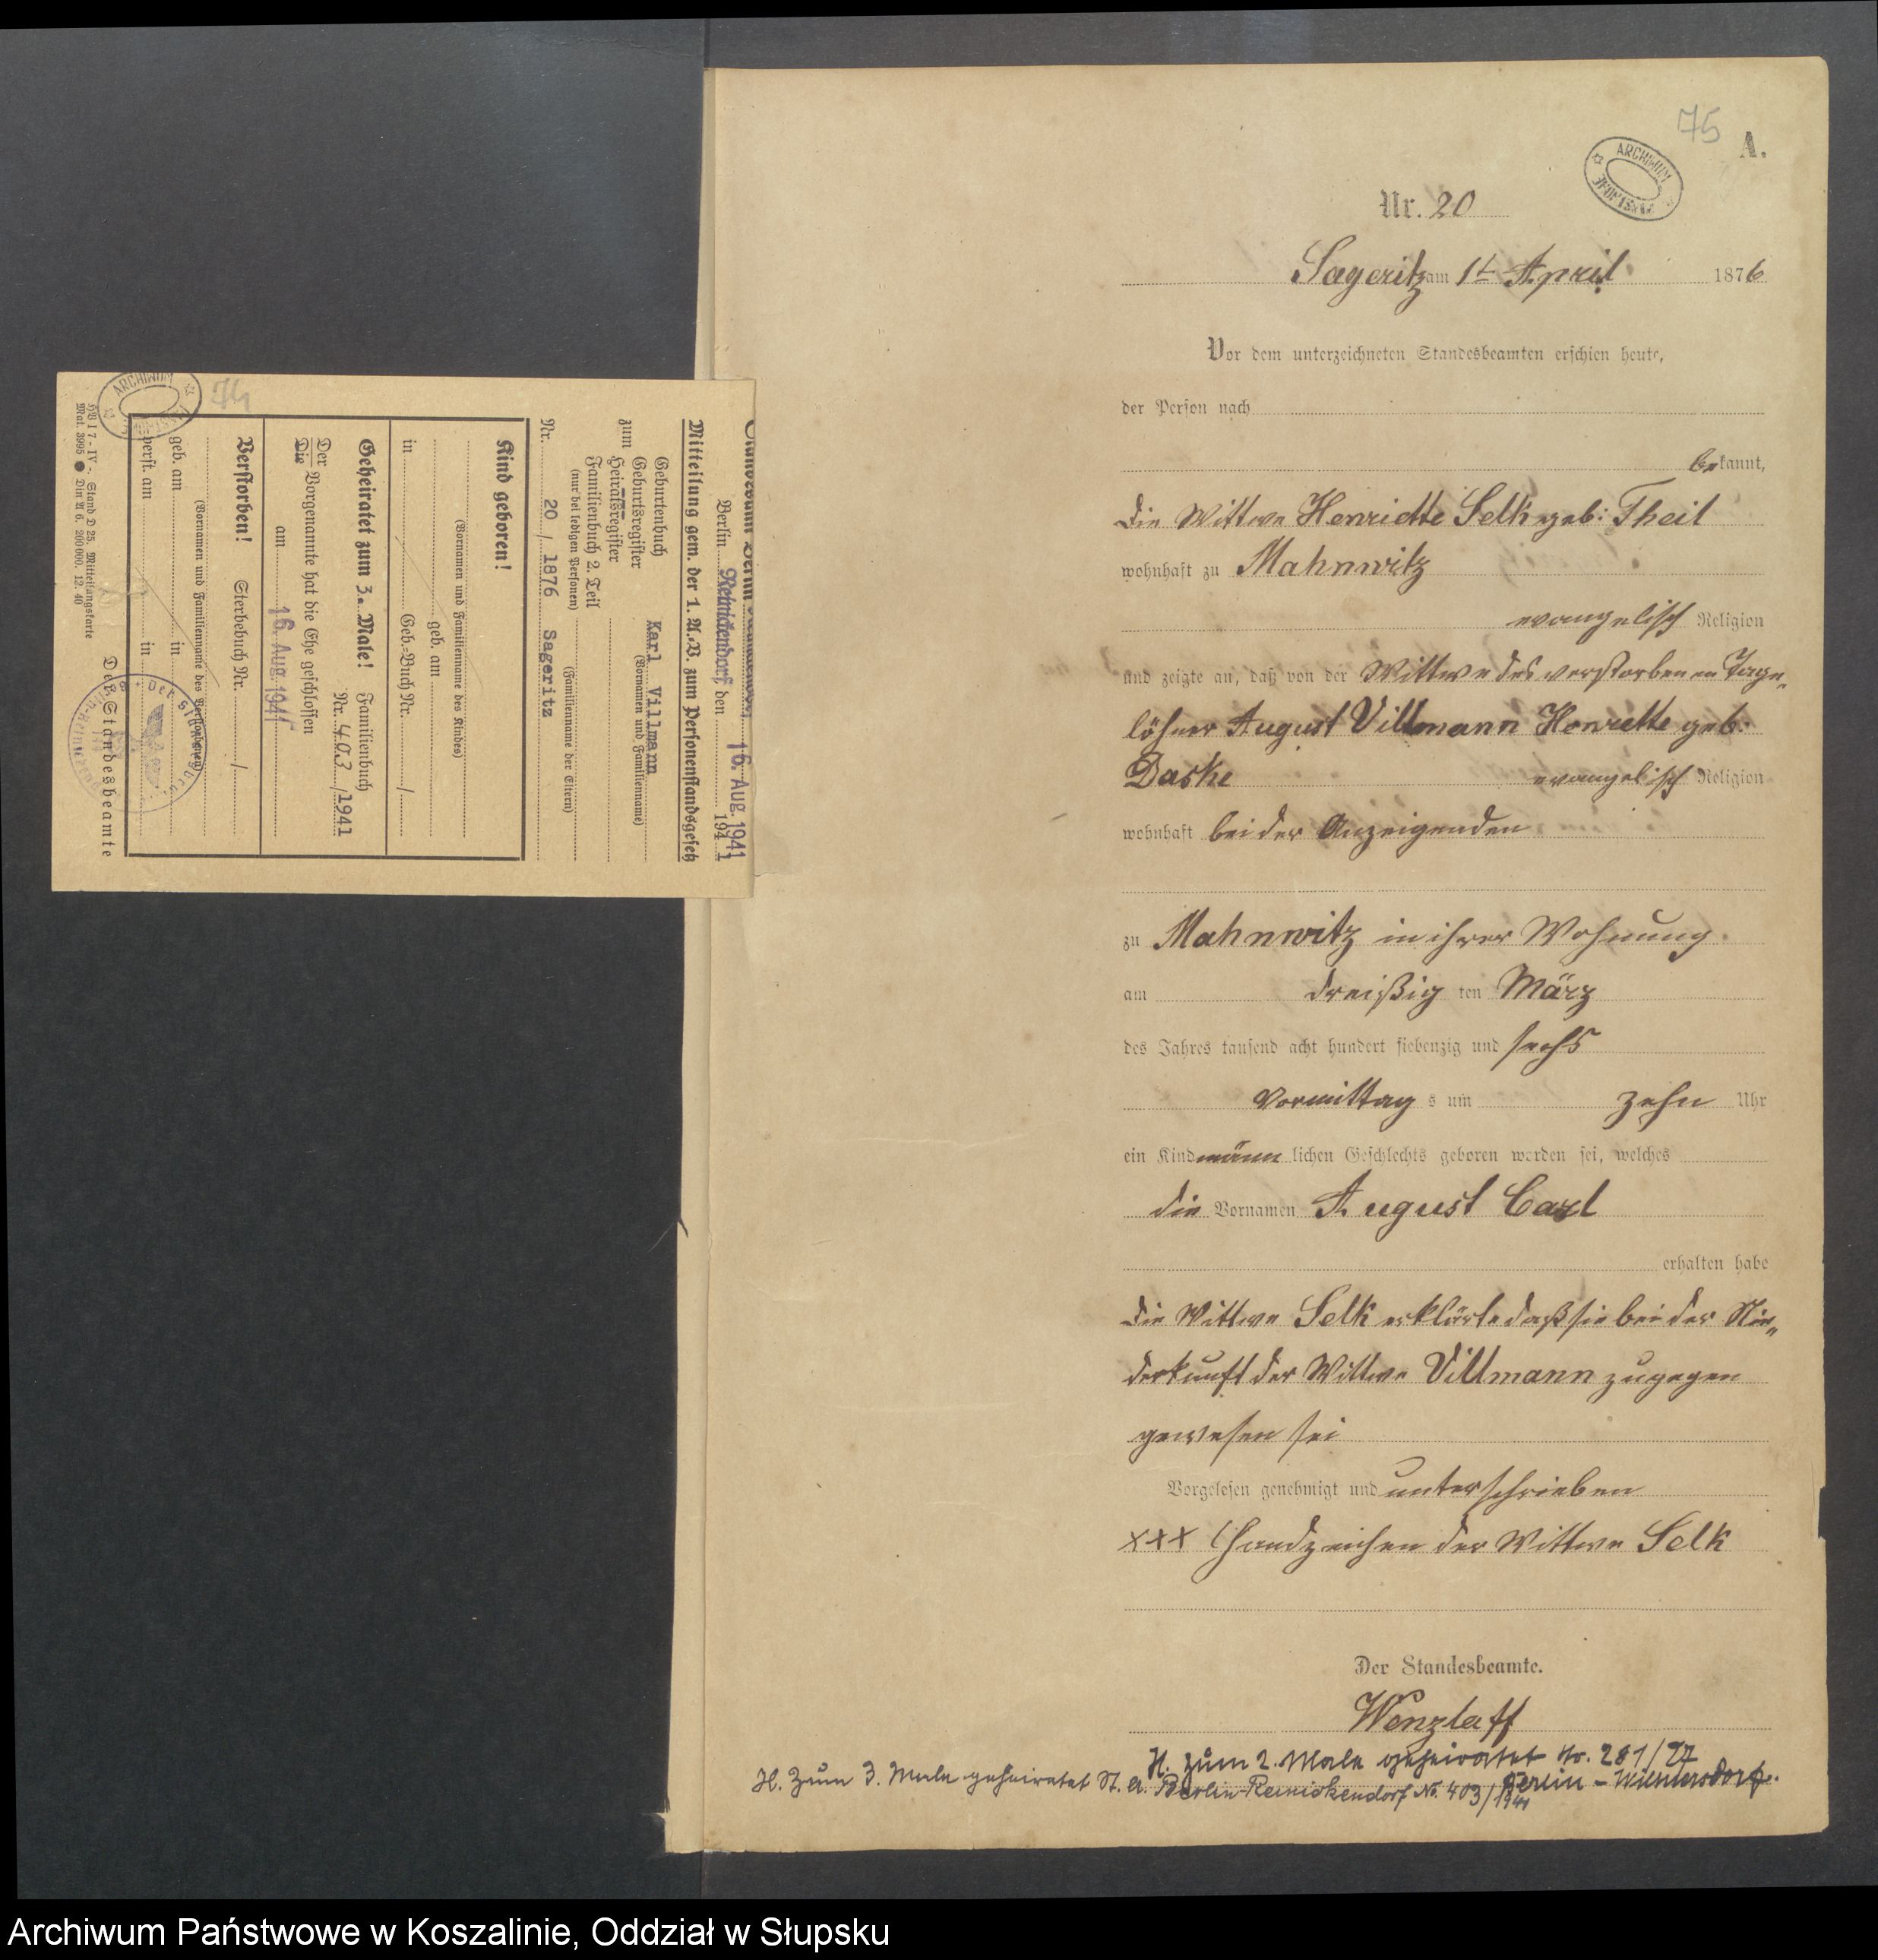 75
A.
ARCHIWUM
Nr. 20
Sageritz am 1t April 1876
Vor dem unterzeichneten Standesbeamten erschien heute,
der Person nach
bekannt,
die Wittwe Henriette Selk geb: Theil
wohnhaft zu Mahnwitz
evangelisch Religion
und zeigte an, daß von der Wittwe des verstorbenen Tage„
löhner August Villmann Henrette geb:
Daske evangelisch Religion
wohnhaft bei der Anzeigenden
zu Mahnwitz in ihrer Wohnung
am dreißig ten März
des Jahres tausend acht hundert siebenzig und sechs
Vormittag s um zehn Uhr
ein Kind männ lichen Geschlechts geboren worden sei, welches
die Vornamen August Carl
erhalten habe
die Wittwe Selk erklärte daß sie bei der Nie„
derkunft der Wittwe Villmann zugegen
gewesen sei
Vorgelesen genehmigt und unterschrieben
xxx Handzeichen der Wittwe Selk
Der Standesbeamte.
Wenzlaff
H. Zum 2. Male geheiratet Nr. 281/27
Berlin-Wilmersdorf.
H. Zum 3. Male geheiratet St. A. Berlin-Reinickendorf No. 403/1941
74
ARCHIWUM
Berlin Reinickendorf den 16. Aug. 1941 1941
Mitteilung gem. der 1. A.-V. zum Personenstandsgesetz
zum
Geburtenbuch
Geburtsregister
Heiratsregister
Familienbuch 2. Teil
(nur bei ledigen Personen)
Karl Villmann
(Vornamen und Familienname)
(Familienname der Eltern)
Nr. 20 / 1876 Sageritz
Kind geboren!
(Vornamen und Familienname des Kindes)
geb. am
in Geb.=Buch Nr. /
Geheiratet zum 3. Male! Familienbuch
Nr. 403 /1941
Der
Die Vorgenannte hat die Ehe geschlossen
am 16. Aug. 1941
Verstorben! Sterbebuch Nr. /
(Vornamen und Familienname des Verstorbenen)
geb. am in
verst. am in
Der Standesbeamte
HB I 7 - IV -. Stand D 25. Mitteilungskarte
Mat. 3995 ● Din A 6. 200 000. 12. 40
Archiwum Państwowe w Koszalinie, Oddział w Słupsku